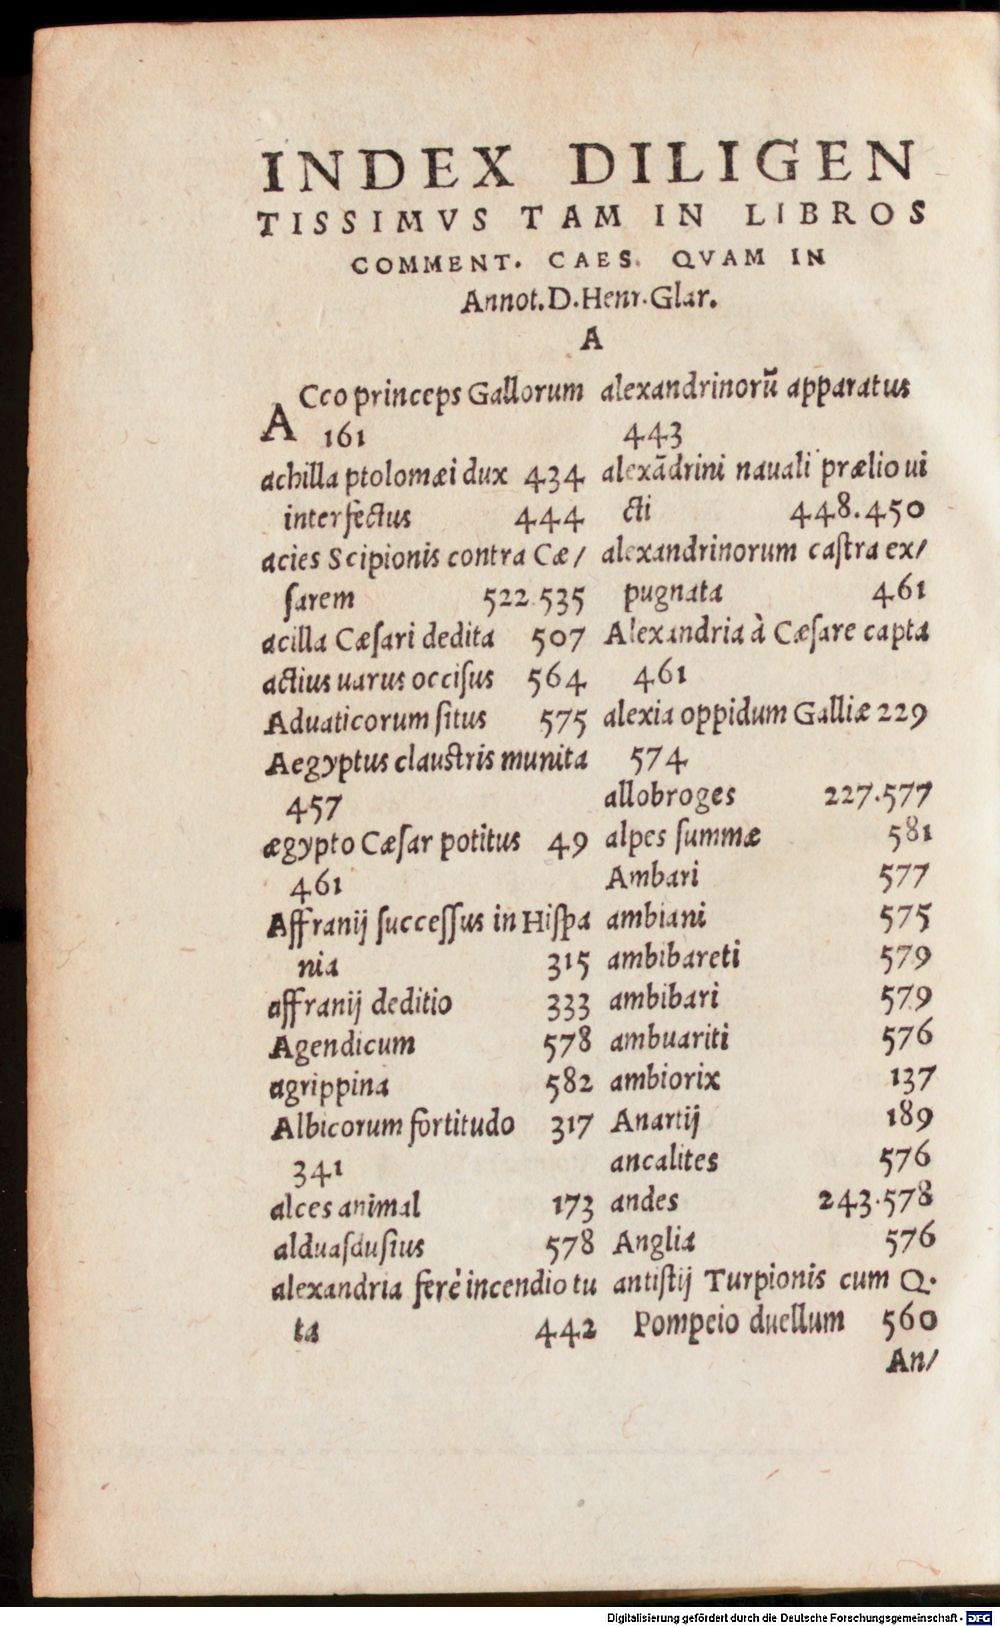 INDEX DILIGEN
TISSIMVS TAM IN LIBROS
COMMENT. CAES. QVAM IN
Annot. D. Henr. Glar.
A
ACco princeps Gallorum
161
achilla ptolomæi dux 434
interfectus 444
acies Scipionis contra Cæ/
ſarem 522.535
acilla Cæſari dedita 507
actius uarus occiſus 564
Aduaticorum ſitus 575
Aegyptus clauſtris munita
457
ægypto Cæſar potitus 49
461
Affranij ſucceſſus in Hiſpa
nia 315
affranij deditio 333
Agendicum 578
agrippina 582
Albicorum fortitudo 317
341
alces animal 173
alduaſduſius 578
alexandria ferè incendio tu
ta 442
alexandrinorū apparatus
443
alexādrini nauali prælio ui
cti 448.450
alexandrinorum caſtra ex/
pugnata 461
Alexandria à Cæſare capta
461
alexia oppidum Galliæ 229
574
allobroges 227.577
alpes ſummæ 581
Ambari 577
ambiani 575
ambibareti 579
ambibari 579
ambuariti 576
ambiorix 137
Anartij 189
ancalites 576
andes 243.578
Anglia 576
antiſtij Turpionis cum Q.
Pompeio duellum 560
An/
Digitalisierung gefördert durch die Deutsche Forschungsgemeinschaft - DFG